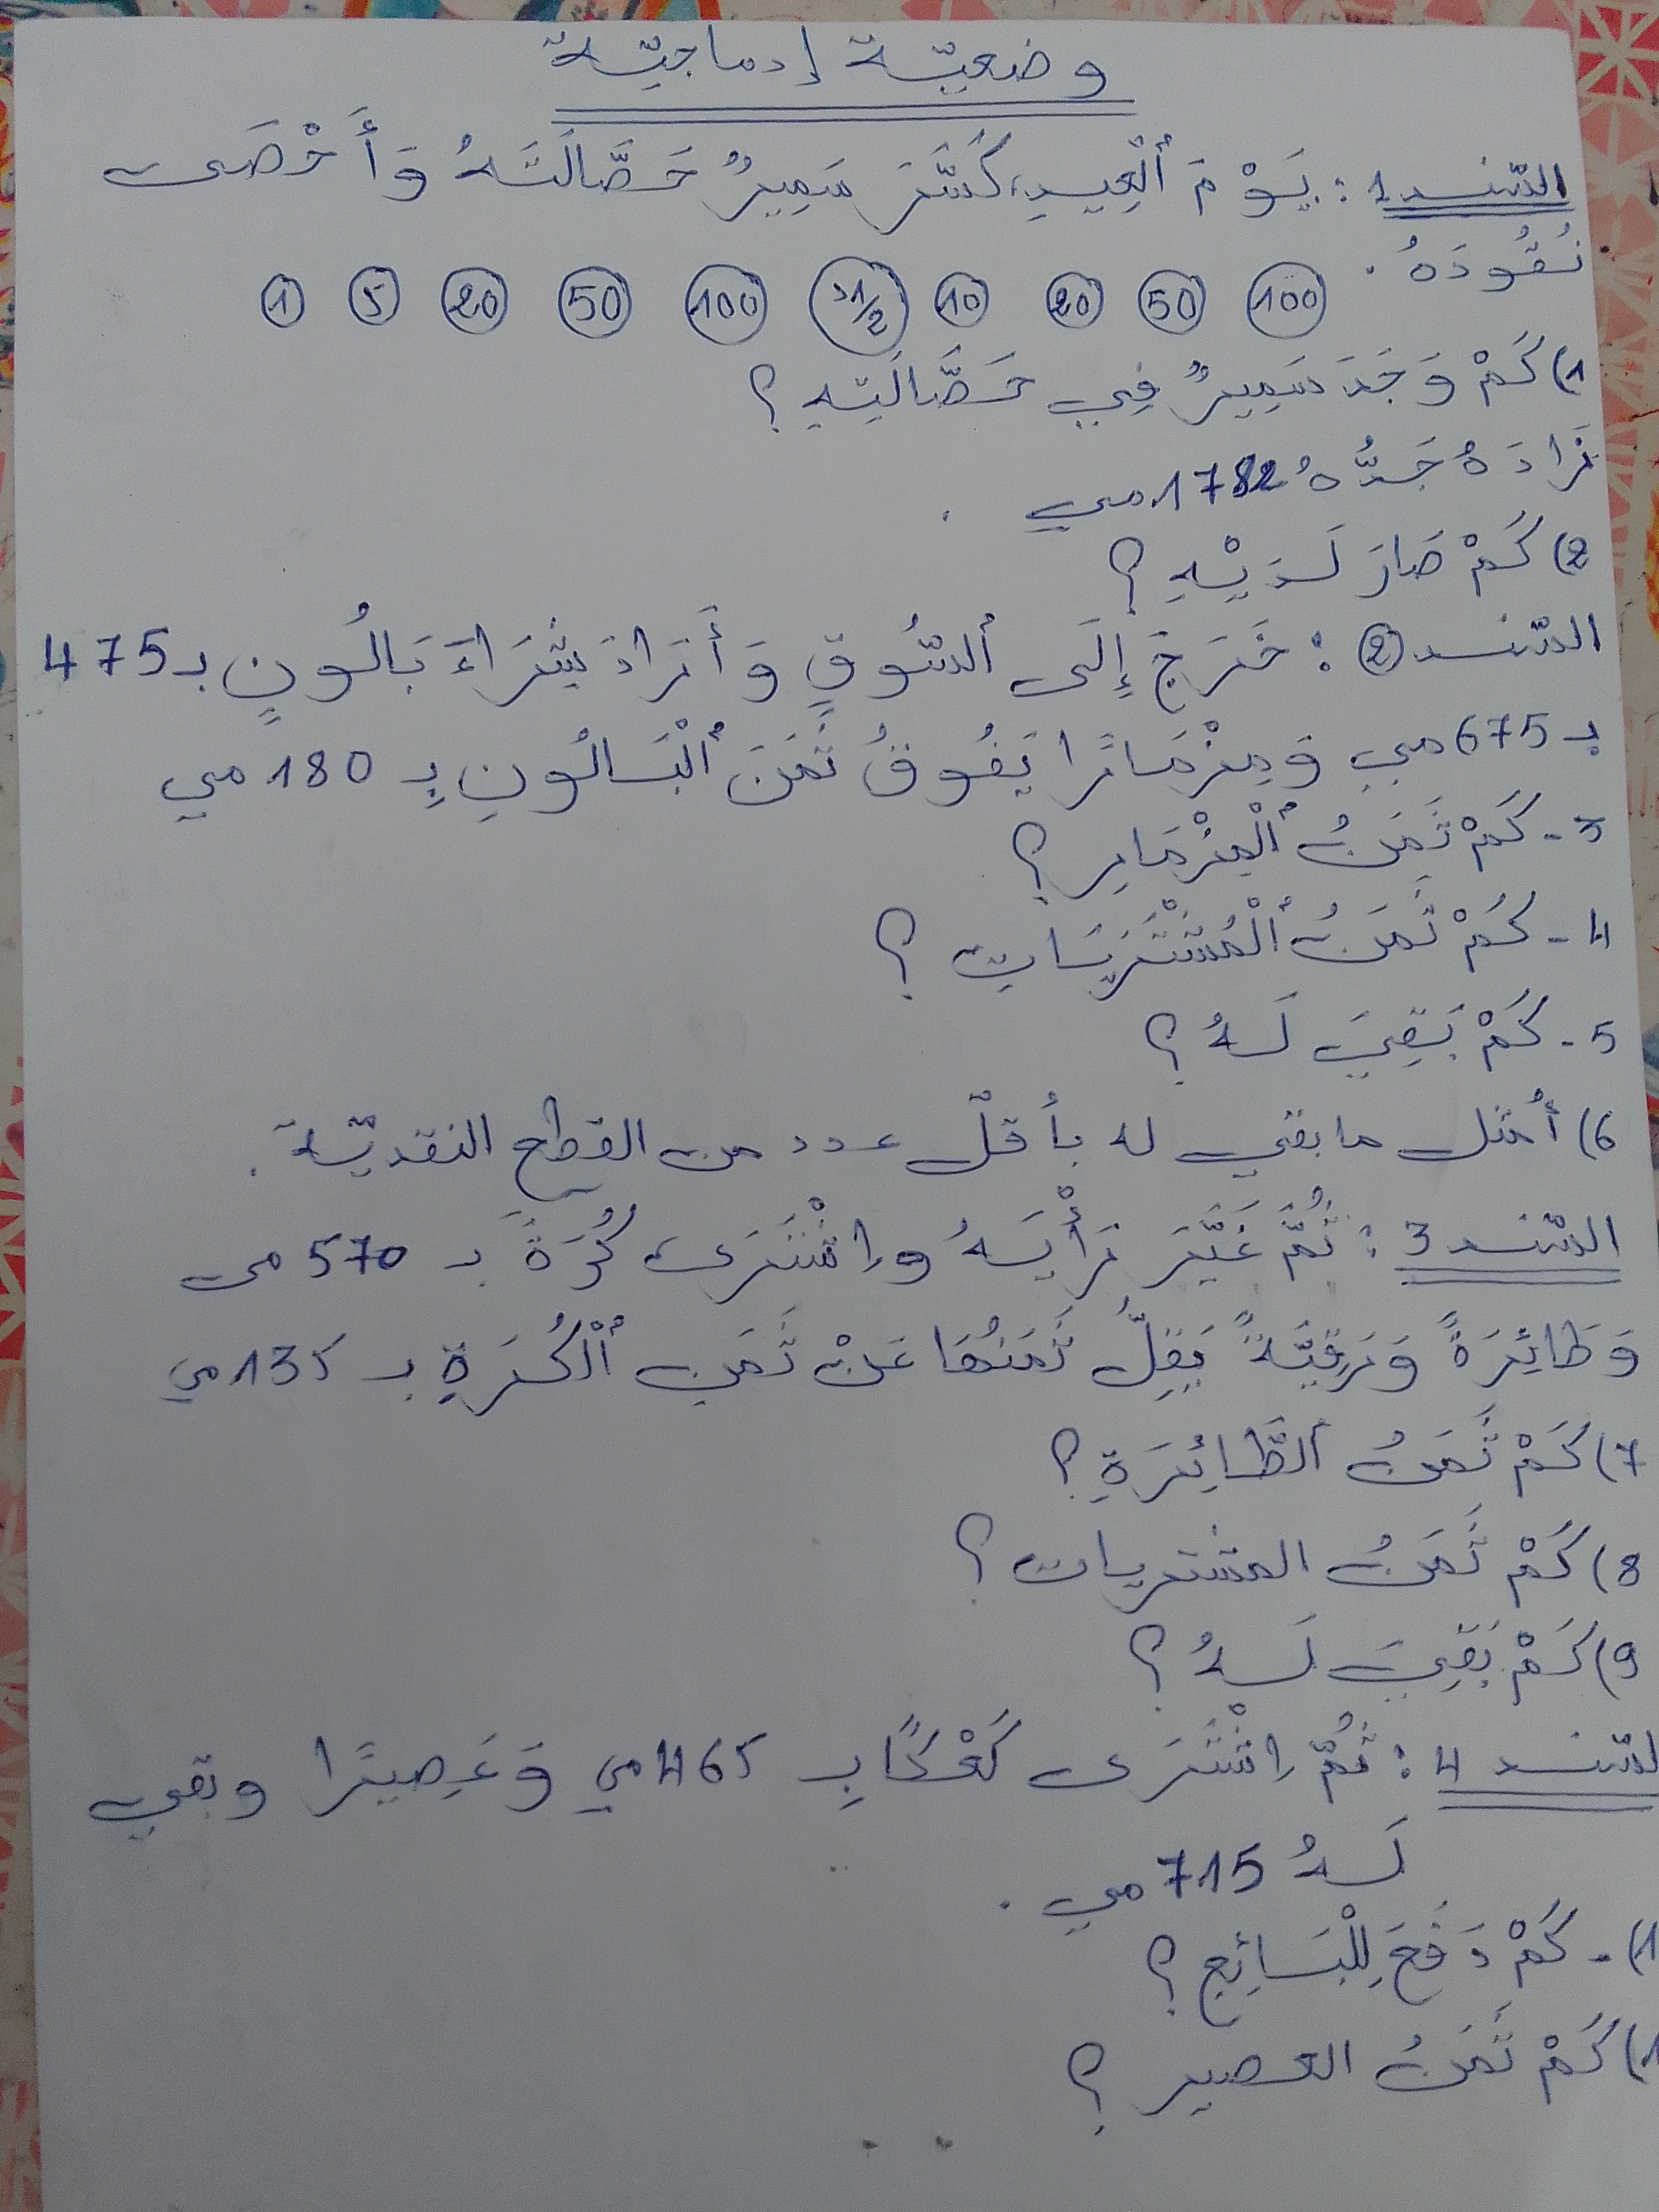 وضعيّة إدماجيّة
السّند 1 : يَوْمَ ٱلْعِيدِ، كَسَّرَ سَمِيرٌ حَصَّالَتَهُ وَأَحْصَى
نُقُودَهُ .
100 50 20 10 1/2د 100 50 20 5 1
1) كَمْ وَجَدَ سَمِيرٌ فِي حَصَّالَتِهِ ؟
زَادَهُ جَدُّهُ 1782 مي .
2) كَمْ صَارَ لَدَيْهِ ؟
السّند 2 : خَرَجَ إِلَى ٱلسُّوقِ وَأَرَادَ شِرَاءَ بَالُونٍ بـ 475
بـ 675 مي وَمِزْمَارًا يَفُوقُ ثَمَنَ ٱلْبَالُونِ بِـ 180 مي
3 - كَمْ ثَمَنُ ٱلْمِزْمَارِ ؟
4 - كَمْ ثَمَنُ ٱلْمُشْتَرَيَاتِ ؟
5 - كَمْ بَقِيَ لَهُ ؟
6) أمثّل ما بقي له بأقلّ عدد من القطع النقديّة .
السّند 3 : ثُمَّ غَيَّرَ رَأْيَهُ واشْتَرَى كُرَةً بـ 570 مي
وَطَائِرَةً وَرَقِيَّةً يَقِلُّ ثَمَنُهَا عَنْ ثَمَنِ ٱلْكُرَةِ بـ 135 مي
7) كَمْ ثَمَنُ ٱلطَّائِرَةِ ؟
8) كَمْ ثَمَنُ المشتريات ؟
9) كَمْ بَقِيَ لَهُ ؟
لسّند 4 : ثُمَّ اِشْتَرَى كَعْكًا بِـ 465 مي وَعَصِيرًا وبقي
لَهُ 715 مي .
1) - كَمْ دَفَعَ لِلْبَائِعِ ؟
1) كَمْ ثَمَنُ العصير ؟